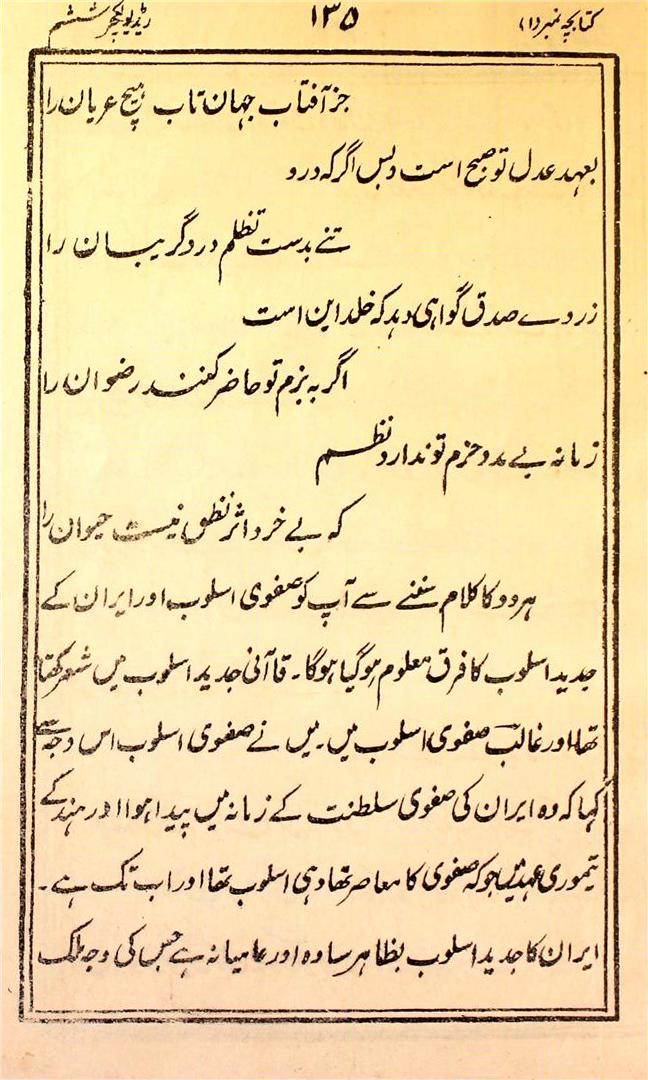 کتابچہ نمبر (۱) ۱۳۵ ریڈیو لکچر ششم
جز آفتاب جہان تاب ہیچ عریان را
بعہد عدل تو صبح است و بس اگر کہ درو
تنے بدست تظلم درد گریبان را
ز روے صدق گواہی دہد کہ خلد این است
اگر بہ بزم تو حاضر کنند رضوان را
زمانہ بے مدد حزم تو ندارد نظم
کہ بے خرد اثر نطق نیست حیوان را
ہر دو کا کلام سننے سے آپ کو صفوی اسلوب اور ایران کے
جدید اسلوب کا فرق معلوم ہو گیا ہوگا۔ قاآنی جدید اسلوب میں شعر کہتا
تھا اور غالب صفوی اسلوب میں۔ میں نے صفوی اسلوب اس وجہ سے
کہا کہ وہ ایران کی صفوی سلطنت کے زمانہ میں پیدا ہوا اور ہند کے
تیموری عہد میں جو کہ صفوی کا معاصر تھا وہی اسلوب تھا اور اب تک ہے۔
ایران کا جدید اسلوب بظاہر سادہ اور عامیانہ ہے جس کی وجہ ملک